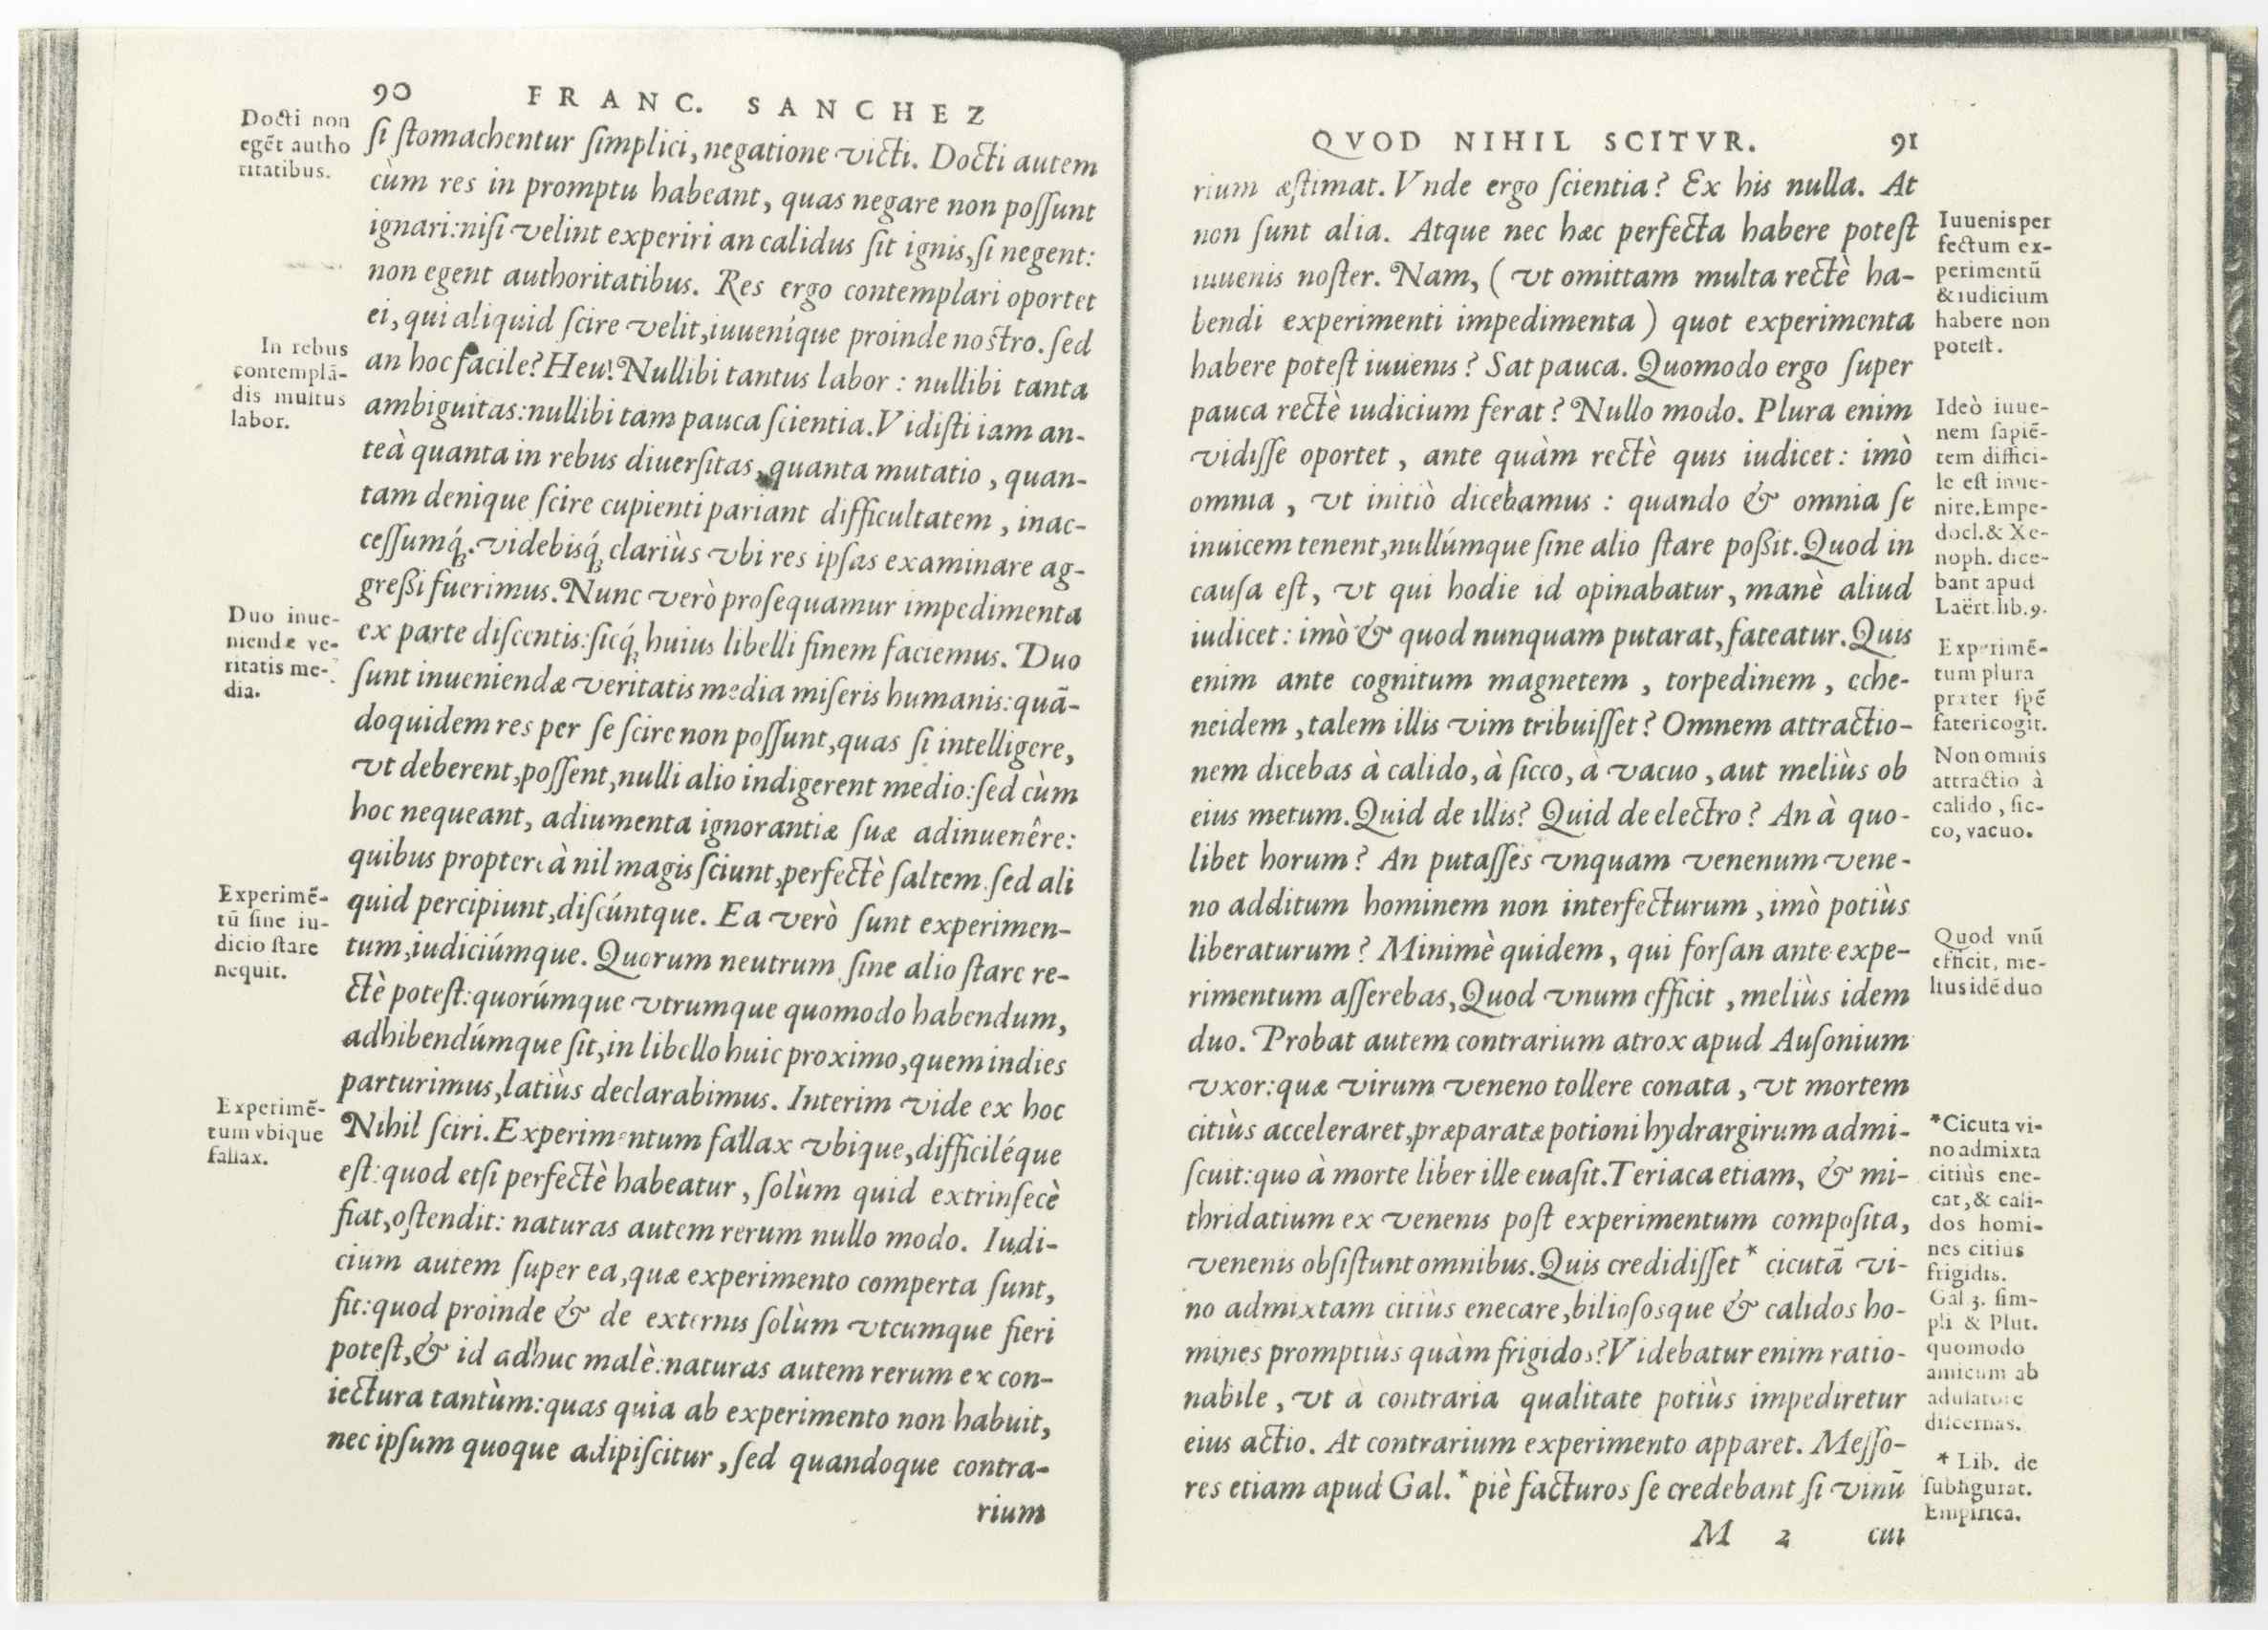 90 FRANC. SANCHEZ
Docti non
egẽt autho
ritatibus.
ſi ſtomachentur ſimplici, negatione victi. Docti autem
cùm res in promptu habeant, quas negare non poſſunt
ignari: niſi velint experiri an calidus ſit ignis, ſi negent:
non egent authoritatibus. Res ergo contemplari oportet
ei, qui aliquid ſcire velit, iuueníque proinde noſtro. ſed
an hoc facile? Heu! Nullibi tantus labor: nullibi tanta
ambiguitas: nullibi tam pauca ſcientia. Vidiſti iam an-
teà quanta in rebus diuerſitas, quanta mutatio, quan-
tam denique ſcire cupienti pariant difficultatem, inac-
ceſſumq́; videbisq́; clariùs vbi res ipſas examinare ag-
greßi fuerimus. Nunc verò proſequamur impedimenta
ex parte diſcentis: ſicq́; huius libelli finem faciemus. Duo
ſunt inueniendæ veritatis media miſeris humanis: quã-
doquidem res per ſe ſcire non poſſunt, quas ſi intelligere,
vt deberent, poſſent, nulli alio indigerent medio: ſed cùm
hoc nequeant, adiumenta ignorantiæ ſuæ adinuenêre:
quibus propterеà nil magis ſciunt, perfectè ſaltem. ſed ali
quid percipiunt, diſcúntque. Ea verò ſunt experimen-
tum, iudiciúmque. Quorum neutrum ſine alio ſtare re-
ctè poteſt: quorúmque vtrumque quomodo habendum,
adhibendúmque ſit, in libello huic proximo, quem indies
parturimus, latiùs declarabimus. Interim vide ex hoc
Nihil ſciri. Experimentum fallax vbique, difficiléque
eſt: quod etſi perfectè habeatur, ſolùm quid extrinſecè
fiat, oſtendit: naturas autem rerum nullo modo. Iudi-
cium autem ſuper ea, quæ experimento comperta ſunt,
fit: quod proinde & de externis ſolùm vtcumque fieri
poteſt, & id adhuc malè: naturas autem rerum ex con-
iectura tantùm: quas quia ab experimento non habuit,
nec ipſum quoque adipiſcitur, ſed quandoque contra-
rium
In rebus
contemplã-
dis multus
labor.
Duo inue-
niendæ ve-
ritatis me-
dia.
Experimẽ-
tũ ſine iu-
dicio ſtare
nequit.
Experimẽ-
tum vbique
fallax.
QVOD NIHIL SCITVR. 91
rium æſtimat. Vnde ergo ſcientia? Ex his nulla. At
non ſunt alia. Atque nec hæc perfecta habere poteſt
iuuenis noſter. Nam, (vt omittam multa rectè ha-
bendi experimenti impedimenta) quot experimenta
habere poteſt iuuenis? Sat pauca. Quomodo ergo ſuper
pauca rectè iudicium ferat? Nullo modo. Plura enim
vidiſſe oportet, ante quàm rectè quis iudicet: imò
omnia, vt initiò dicebamus: quando & omnia ſe
inuicem tenent, nullúmque ſine alio ſtare poßit. Quod in
cauſa eſt, vt qui hodie id opinabatur, manè aliud
iudicet: imò & quod nunquam putarat, fateatur. Quis
enim ante cognitum magnetem, torpedinem, eche-
neidem, talem illis vim tribuiſſet? Omnem attractio-
nem dicebas à calido, à ſicco, à vacuo, aut meliùs ob
eius metum. Quid de illis? Quid de electro? An à quo-
libet horum? An putaſſes vnquam venenum vene-
no additum hominem non interfecturum, imò potiùs
liberaturum? Minimè quidem, qui forſan ante expe-
rimentum aſſerebas, Quod vnum efficit, meliùs idem
duo. Probat autem contrarium atrox apud Auſonium
vxor: quæ virum veneno tollere conata, vt mortem
citiùs acceleraret, præparatæ potioni hydrargirum admi-
ſcuit: quo à morte liber ille euaſit. Teriaca etiam, & mi-
thridatium ex venenis poſt experimentum compoſita,
venenis obſiſtunt omnibus. Quis credidiſſet* cicutã vi-
no admixtam citiùs enecare, bilioſosque & calidos ho-
mines promptiùs quàm frigidos? Videbatur enim ratio-
nabile, vt à contraria qualitate potiùs impediretur
eius actio. At contrarium experimento apparet. Meſſo-
res etiam apud Gal.* piè facturos ſe credebant ſi vinũ
M 2 cui
Iuuenis per
fectum ex-
perimentũ
& iudicium
habere non
poteſt.
Ideò iuue-
nem ſapiẽ-
tem diffici-
le eſt inue-
nire. Empe-
docl. & Xe-
noph. dice-
bant apud
Laërt. lib. 9.
Experimẽ-
tum plura
præter ſpẽ
fateri cogit.
Non omnis
attractio à
calido, ſic-
co, vacuo.
Quod vnũ
efficit, me-
lius idẽ duo
*Cicuta vi-
no admixta
citiùs ene-
cat, & cali-
dos homi-
nes citius
frigidis.
Gal 3. ſim-
pli & Plut.
quomodo
amicum ab
adulatore
diſcernas.
* Lib. de
ſubfigurat.
Empirica.